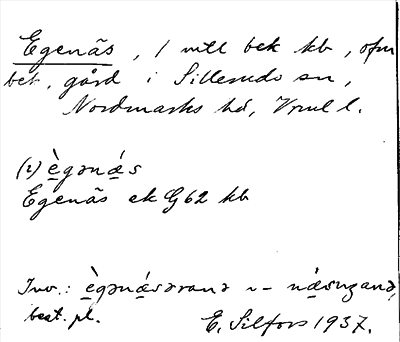 Egenäs, 1 mtl bek kb, ofm
bet. gård i Silleruds sn,
Nordmarks hd, Vrml l.
(2) ègənás
Egenäs ek G62 kb
Inv.: ègənásərana ~ -násɩŋana,
best. pl.
E. Silfors 1937.